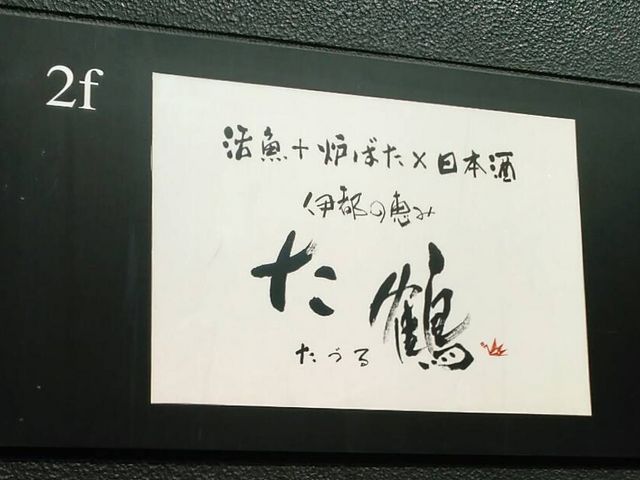 2f
活魚+炉ばた×日本酒
伊都の恵み
た鶴
たづる